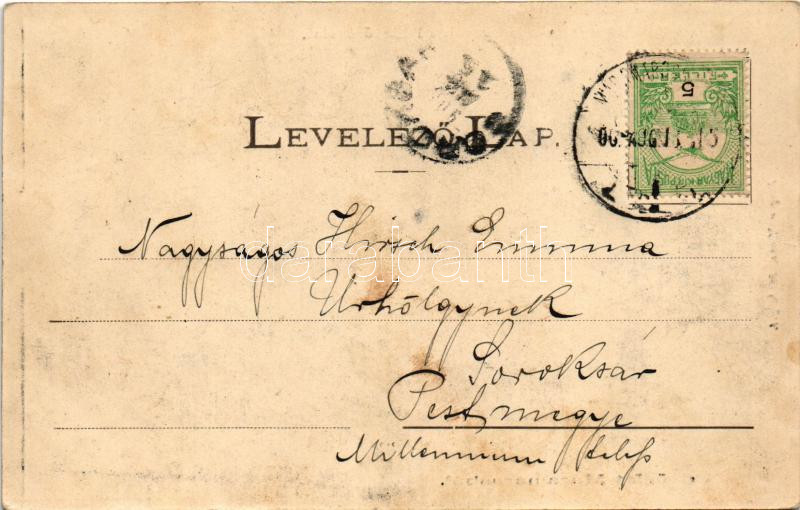 LEVELEZŐ LAP.
5
FILLÉR
MAGYAR KIR. POSTA
Nagyságos Hirsch Emma
Urhölgynek
Soroksár
Pestmegye
Millennium telep
darabanth